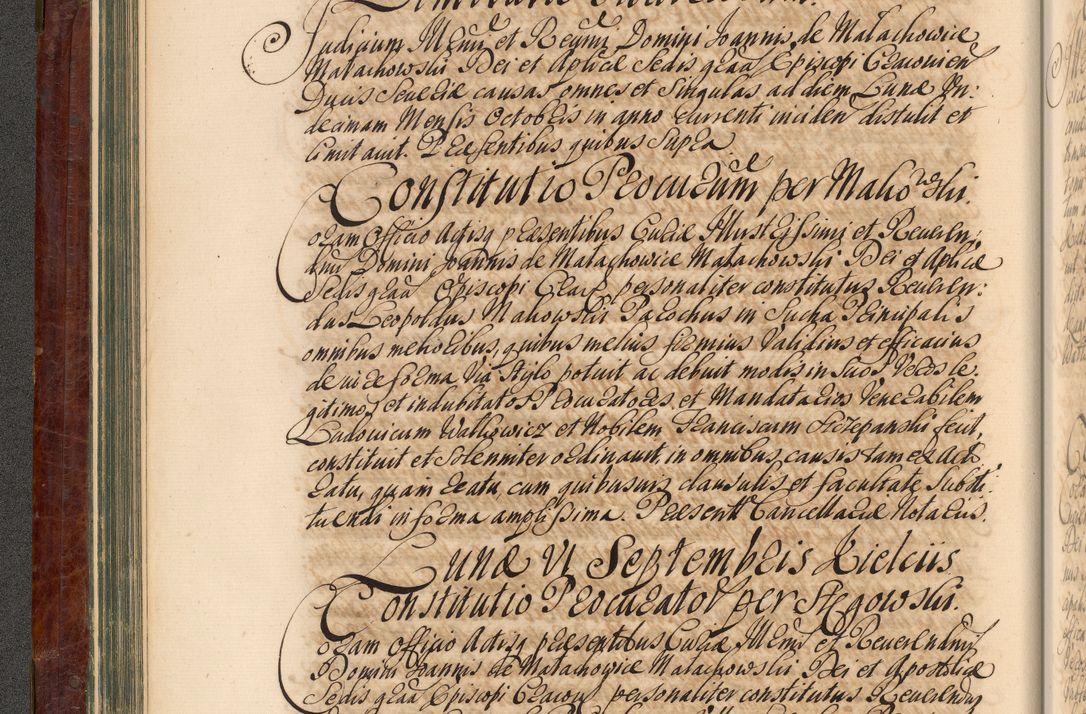 Judicium Illmi et Reymi Domini Joannis de Małachowice
Małachowski Dei et Aplicæ Sedis graã Episcopi Cracovien
Ducis Severiæ causas omnes et singulas ad diem Lunæ
decimam Mensis Octobris in anno currenti inciden distulit et
limitavit. Præsentibus quibus supra
Constitutio Procurum per Mahowski.
Coram Officio Actisq præsentibus Curiæ Illustrissimi et Reveren:
dmi Domini Joannis de Małachowice Małachowski Dei et Aplicæ
Sedis graã Episcopi Crac personaliter constitutus Reveren:
dus Leopoldus Mahowski Parochus in Sucha Principalis
omnibus melioribus, quibus melius firmius validius et efficacius
de iure forma via stylo potuit ac debuit modis in suos veros le
gitimos et indubitatos Procuratores et Mandatarios Venerabilem
Ludovicum Walkowicz et Nobilem Franciscum Sczepanski fecit,
constituit et solenniter ordinavit, in omnibus causis tam ex acto
ratu, quam reatu, cum quibusvis clausulis et facultate substi
tuendi in forma amplissima. Præsent Cancellariæ Notariis.
Lunæ VI Septembris Kielciis
Constitutio Procurator per Stęgowski.
Coram Officio Actisq præsentibus Curiæ Illmi et Reverendmi
Domini Joannis de Małachowice Małachowski Dei et Apostolicæ
Sedis graã Episcopi Cracov personaliter constitutus Reverendus